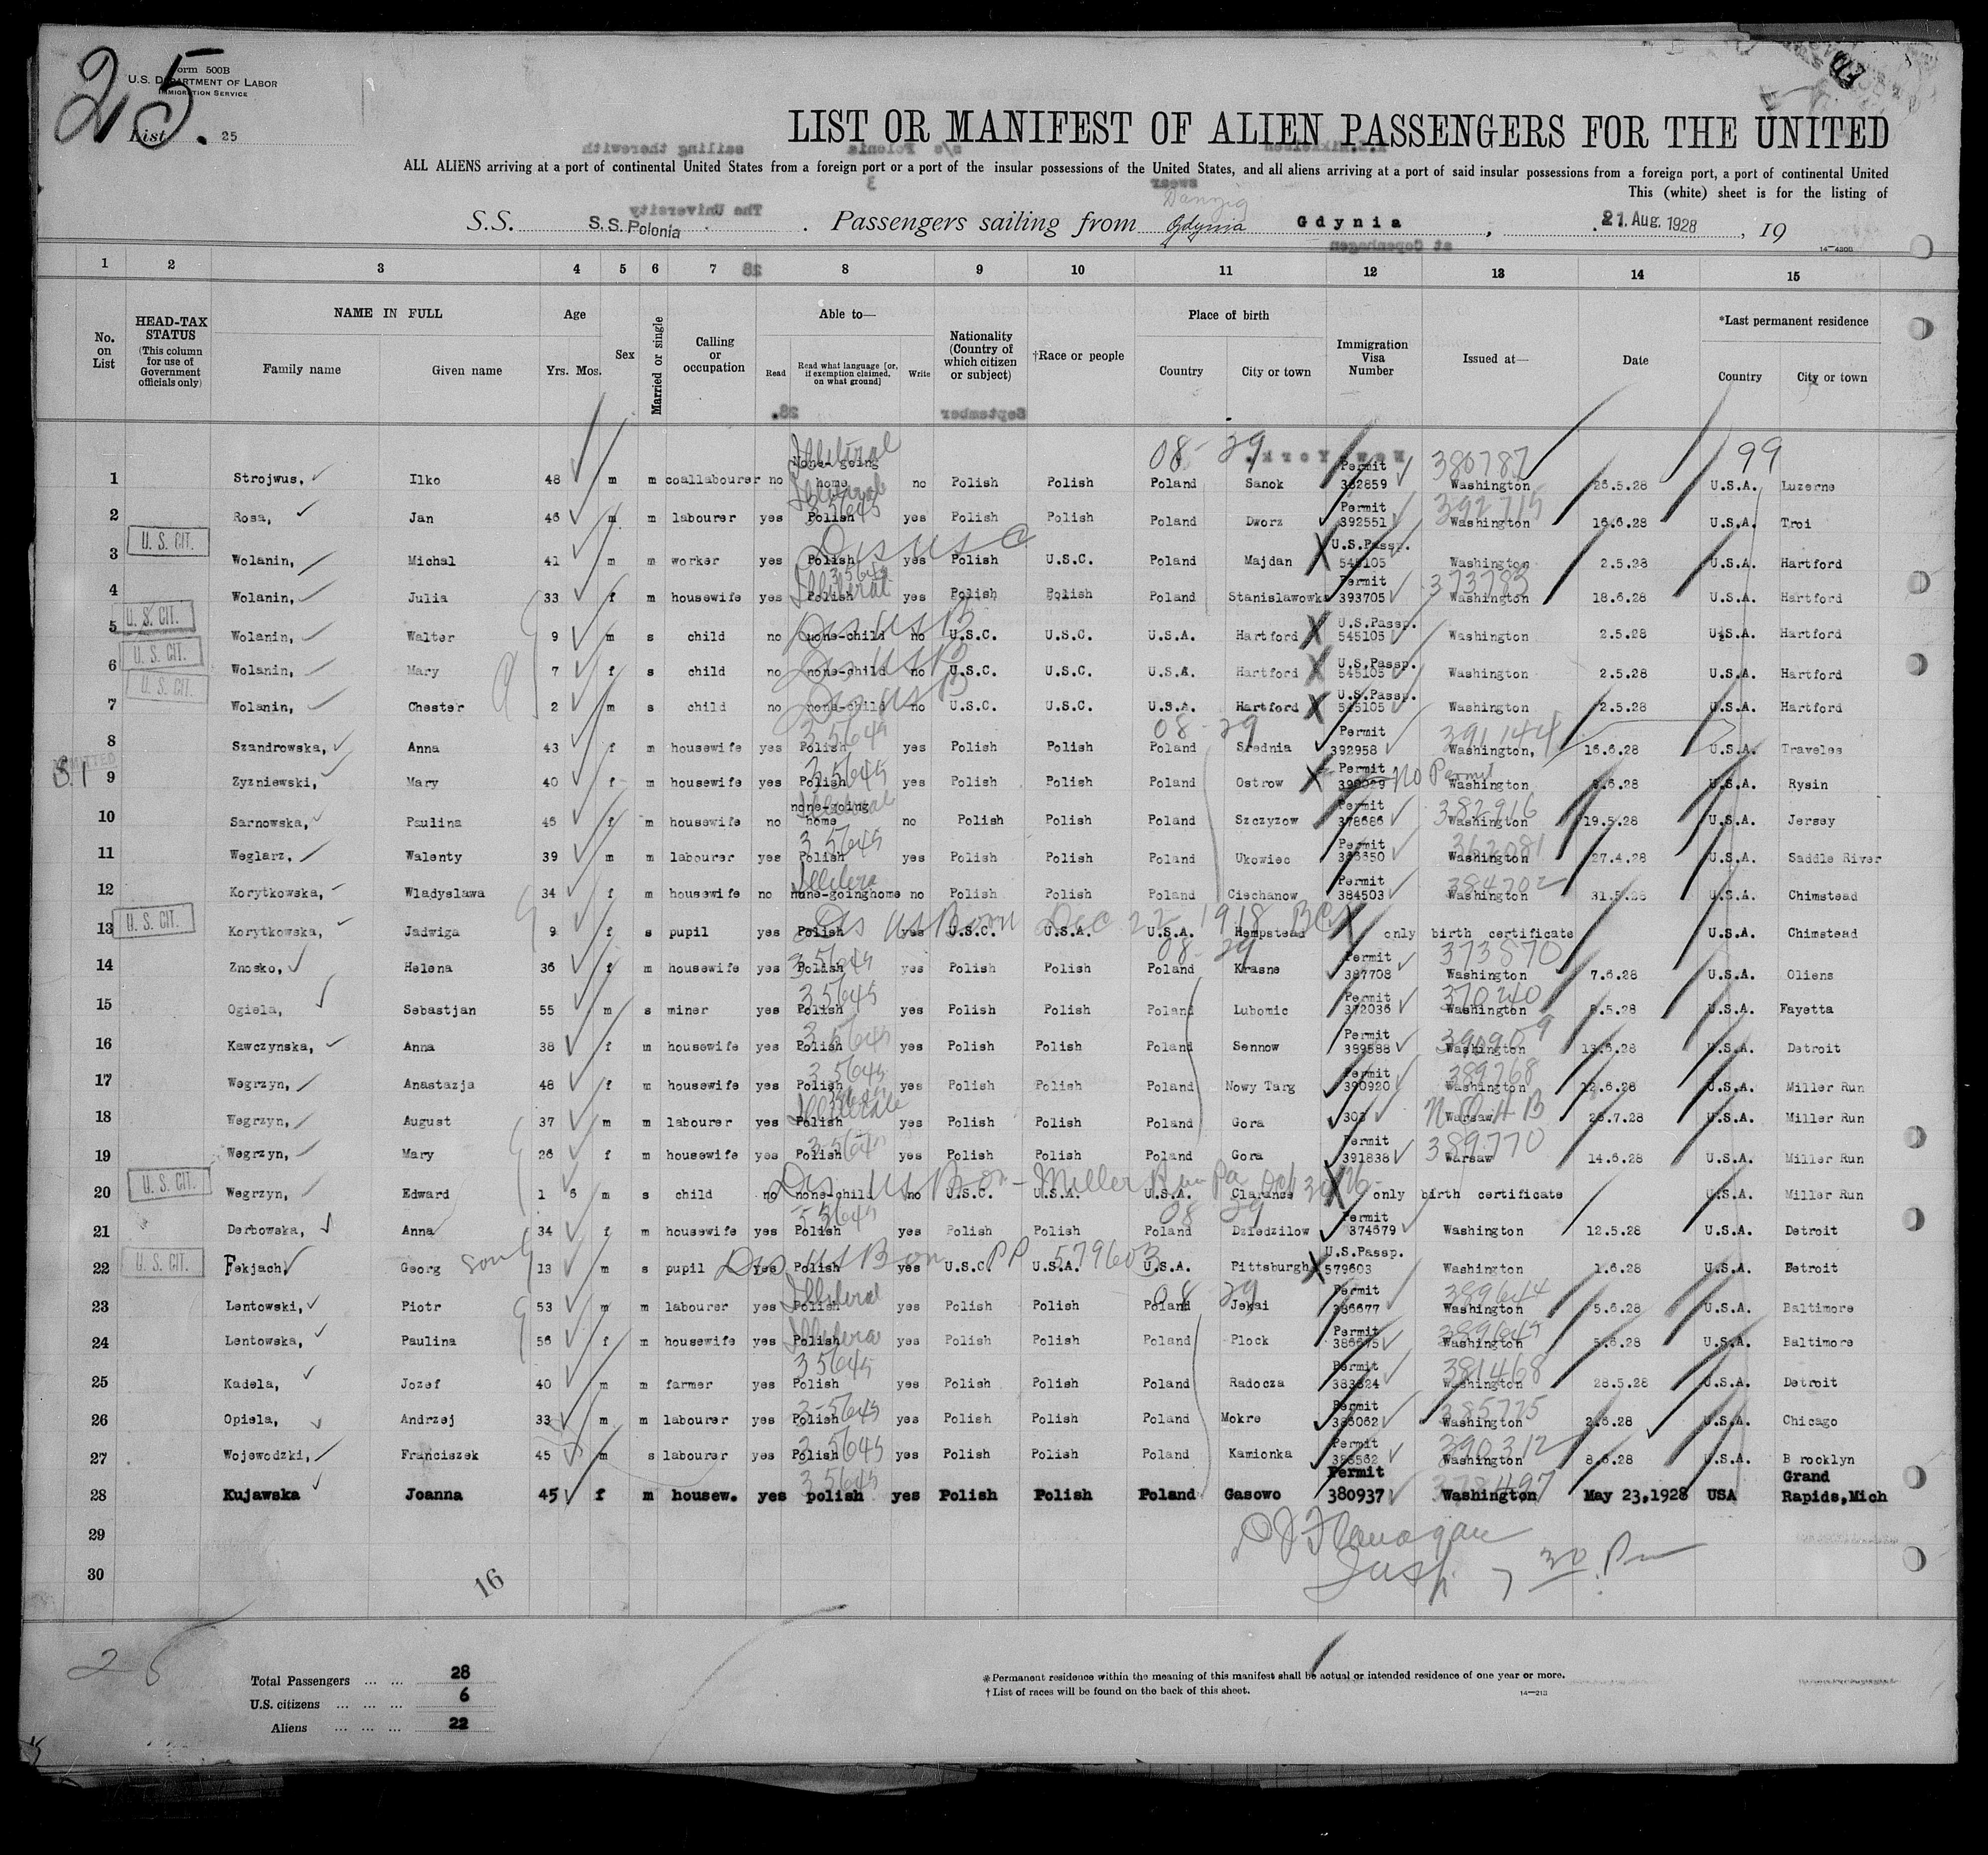 25.
Form 500B
U.S. DEPARTMENT OF LABOR
IMMIGRATION SERVICE
List 25
LIST OR MANIFEST OF ALIEN PASSENGERS FOR THE UNITED
ALL ALIENS arriving at a port of continental United States from a foreign port or a port of the insular possessions of the United States, and all aliens arriving at a port of said insular possessions from a foreign port, a port of continental United
This (white) sheet is for the listing of
Danzig
S.S. S.S. Polonia. Passengers sailing from Gdynia Gdynia, 21. Aug. 1928, 19
14—4200
1 2 3 4 5 6 7 8 9 10 11 12 13 14 15
No. on List
HEAD-TAX STATUS (This column for use of Government officials only)
NAME IN FULL Family name Given name
Age Yrs. Mos.
Sex
Married or single
Calling or occupation
Able to— Read Read what language [or, if exemption claimed, on what ground] Write
Nationality (Country of which citizen or subject)
†Race or people
Place of birth Country City or town
Immigration Visa Number
Issued at—
Date
*Last permanent residence Country City or town
08-29 99
1 Strojwus, Ilko 48 m m coallabourer no None-going home no Polish Polish Poland Sanok Permit 382859 380787 Washington 26.5.28 U.S.A. Luzerne
2 Rosa, Jan 46 m m labourer yes Polish 35645 yes Polish Polish Poland Dworz Permit 392551 392715 Washington 16.6.28 U.S.A. Troi
U. S. CIT.
3 Wolanin, Michal 41 m m worker yes Polish yes Polish U.S.C. Poland Majdan U.S.Passp. 545105 Washington 2.5.28 U.S.A. Hartford
4 Wolanin, Julia 33 f m housewife yes Polish yes Polish Polish Poland Stanislawowka Permit 393705 373783 Washington 18.6.28 U.S.A. Hartford
U. S. CIT.
5 Wolanin, Walter 9 m s child no none-child no U.S.C. U.S.C. U.S.A. Hartford U.S.Passp. 545105 Washington 2.5.28 U.S.A. Hartford
U. S. CIT.
6 Wolanin, Mary 7 f s child no none-child no U.S.C. U.S.C. U.S.A. Hartford U.S.Passp. 545105 Washington 2.5.28 U.S.A. Hartford
U. S. CIT.
7 Wolanin, Chester 2 m s child no none-child no U.S.C. U.S.C. U.S.A. Hartford U.S.Passp. 545105 Washington 2.5.28 U.S.A. Hartford
08-29
8 Szandrowska, Anna 43 f m housewife yes Polish 35645 yes Polish Polish Poland Srednia Permit 392958 391144 Washington, 16.6.28 U.S.A. Traveles
9 Zyzniewski, Mary 40 f m housewife yes Polish 35645 yes Polish Polish Poland Ostrow Permit No Permit Washington 9.6.28 U.S.A. Rysin
10 Sarnowska, Paulina 46 f m housewife no none-going home no Polish Polish Poland Szczyzow Permit 378686 382916 Washington 19.5.28 U.S.A. Jersey
11 Weglarz, Walenty 39 m m labourer yes Polish 35645 yes Polish Polish Poland Ukowiec Permit 362081 Washington 27.4.28 U.S.A. Saddle River
12 Korytkowska, Wladyslawa 34 f m housewife no none-goinghome no Polish Polish Poland Ciechanow Permit 384503 384702 Washington 31.5.28 U.S.A. Chimstead
U. S. CIT.
Dis US Born Dec 22-1918 BC
13 Korytkowska, Jadwiga 9 f s pupil yes Polish yes U.S.C. U.S.A. U.S.A. Hempstead only birth certificate U.S.A. Chimstead
08-29
14 Znosko, Helena 36 f m housewife yes Polish 35645 yes Polish Polish Poland Krasne Permit 387708 373870 Washington 7.6.28 U.S.A. Oliens
15 Ogiela, Sebastjan 55 m s miner yes Polish 35645 yes Polish Polish Poland Lubomic Permit 372036 370240 Washington 8.5.28 U.S.A. Fayetta
16 Kawczynska, Anna 38 f m housewife yes Polish 35645 yes Polish Polish Poland Sennow Permit 389588 390909 Washington 13.6.28 U.S.A. Detroit
17 Wegrzyn, Anastazja 48 f m housewife yes Polish 35645 yes Polish Polish Poland Nowy Targ Permit 390920 389768 Washington 12.6.28 U.S.A. Miller Run
18 Wegrzyn, August 37 m m labourer yes Polish yes Polish Polish Poland Gora 303 Warsaw 26.7.28 U.S.A. Miller Run
19 Wegrzyn, Mary 26 f m housewife yes Polish 35645 yes Polish Polish Poland Gora Permit 391838 389770 Warsaw 14.6.28 U.S.A. Miller Run
U. S. CIT.
20 Wegrzyn, Edward 1 6 m s child no none-child no U.S.C. U.S.A. U.S.A. Clarance only birth certificate U.S.A. Miller Run
Dis US Born - Miller Run Pa
08 29
21 Derbowska, Anna 34 f m housewife yes Polish 35645 yes Polish Polish Poland Dziedzilow Permit 374679 Washington 12.5.28 U.S.A. Detroit
U. S. CIT.
22 Fekjach, Georg son 13 m s pupil yes Polish yes U.S.C. U.S.A. U.S.A. Pittsburgh U.S.Passp. 579603 Washington 1.6.28 U.S.A. Detroit
Dis US Born PP 579603
08 29
23 Lentowski, Piotr 53 m m labourer yes Polish yes Polish Polish Poland Jekai Permit 386677 389644 Washington 5.6.28 U.S.A. Baltimore
24 Lentowska, Paulina 56 f m housewife yes Polish yes Polish Polish Poland Plock Permit 386675 389645 Washington 5.6.28 U.S.A. Baltimore
25 Kadela, Jozef 40 m m farmer yes Polish 35645 yes Polish Polish Poland Radocza Permit 383624 381468 Washington 28.5.28 U.S.A. Detroit
26 Opiela, Andrzej 33 m m labourer yes Polish 35645 yes Polish Polish Poland Mokre Permit 385062 385775 Washington 2.6.28 U.S.A. Chicago
27 Wojewodzki, Franciszek 45 m s labourer yes Polish 35645 yes Polish Polish Poland Kamionka Permit 386562 390312 Washington 8.6.28 U.S.A. Brooklyn
28 Kujawska Joanna 45 f m housew. yes polish 35645 yes Polish Polish Poland Gasowo Permit 380937 378497 Washington May 23,1928 USA Grand Rapids,Mich
29
D J Flanagan
30
Insp 7 30 Pm
16
25
Total Passengers ... ... 28
U.S. citizens ... ... ... 6
Aliens ... ... ... 22
*Permanent residence within the meaning of this manifest shall be actual or intended residence of one year or more.
†List of races will be found on the back of this sheet.
14—213